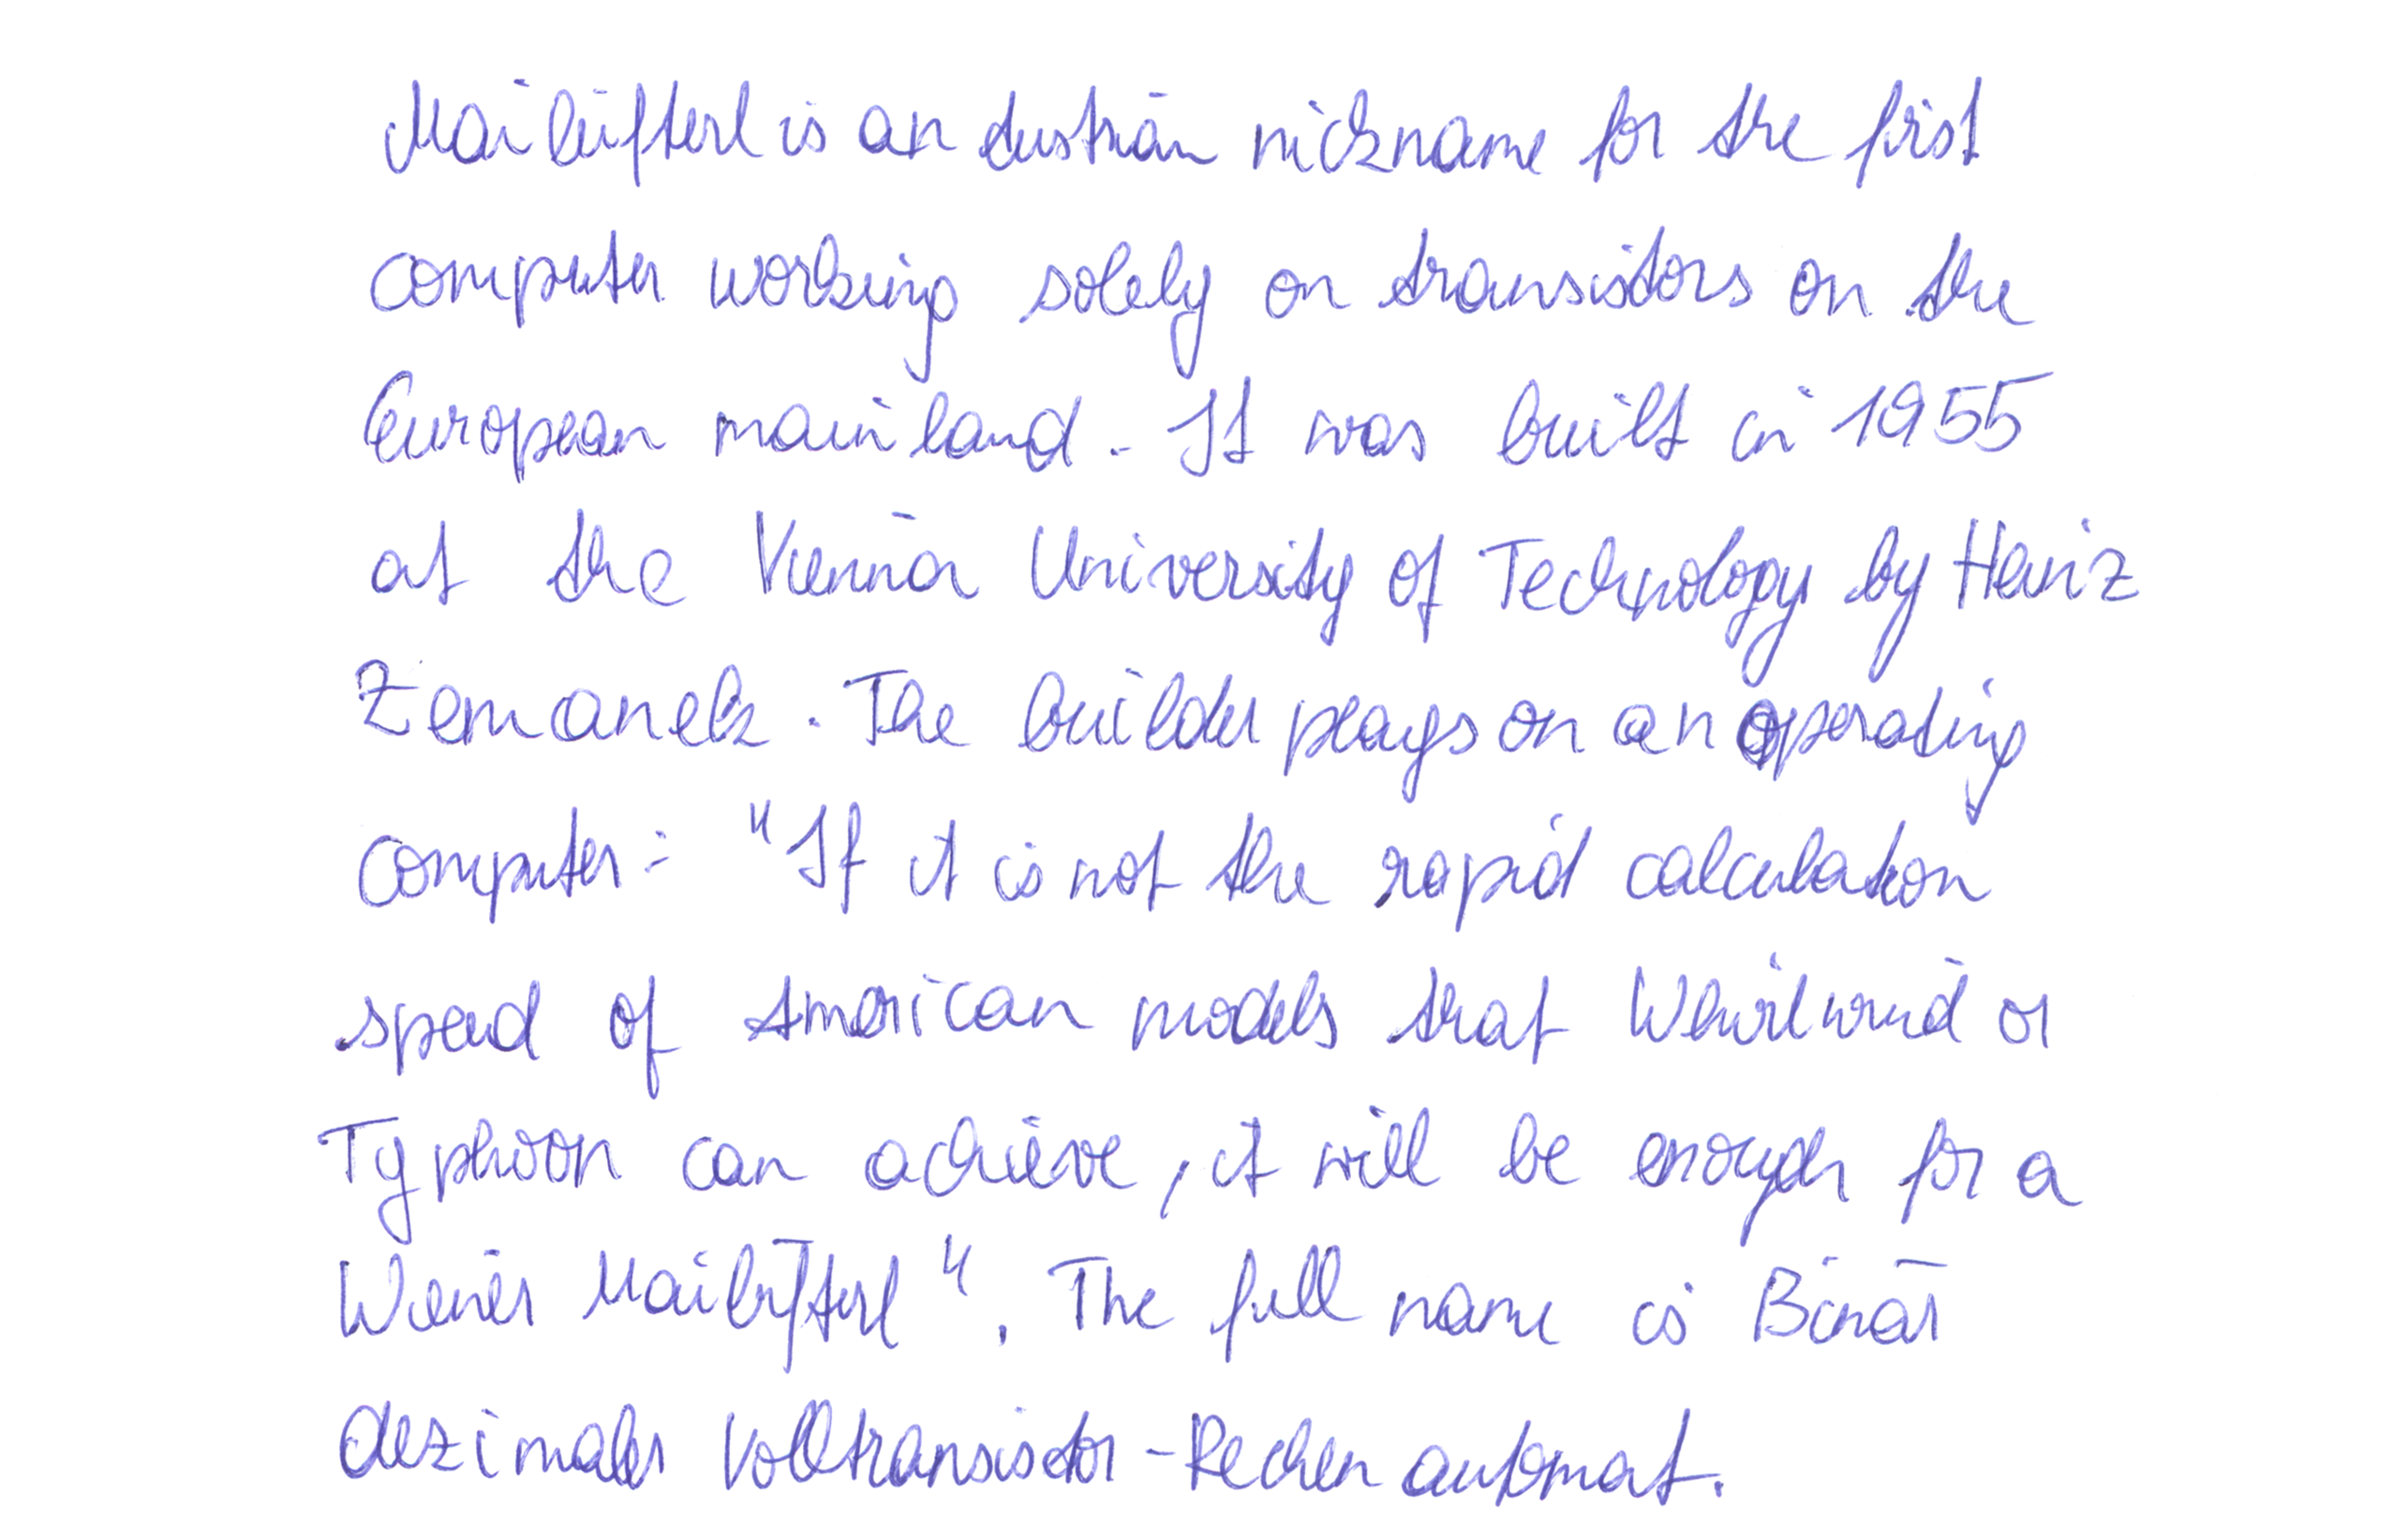 Mailüfterl is an Austrian nickname for the first
computer working solely on transistors on the
European mainland. It was built in 1955
at the Vienna University of Technology by Heinz
Zemanek. The builder plays on an operating
computer: "If it is not the rapid calculation
speed of American models that Whirlwind or
Typhoon can achieve, it will be enough for a
Wiener Mailüfterl". The full name is Binär
dezimaler Volltransistor-Rechenautomat.